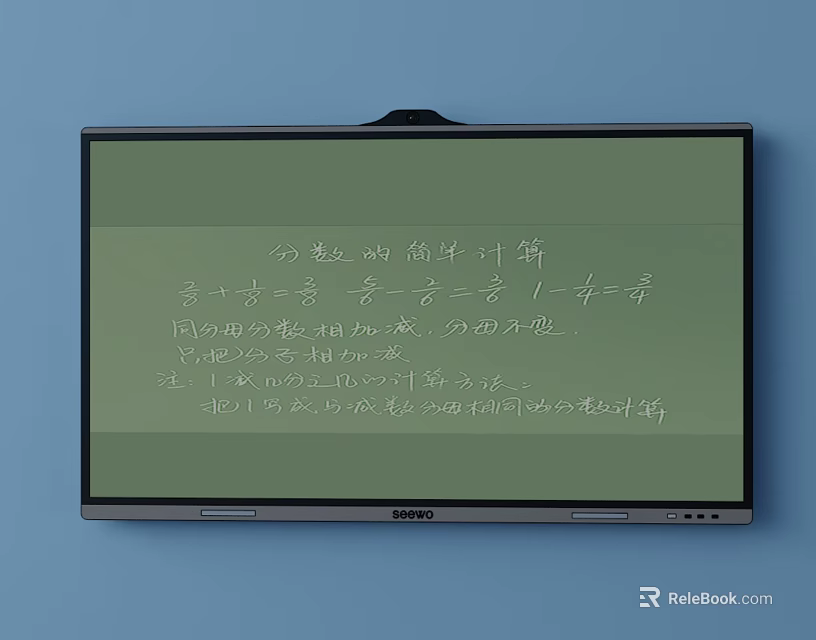 分数的简单计算
2/8+1/8=3/8 5/6-2/6=3/6 1-1/4=3/4
同分母分数相加减,分母不变,
只把分子相加减
注:1减几分之几的计算方法:
把1写成与减数分母相同的分数计算
seewo
ReleBook.com